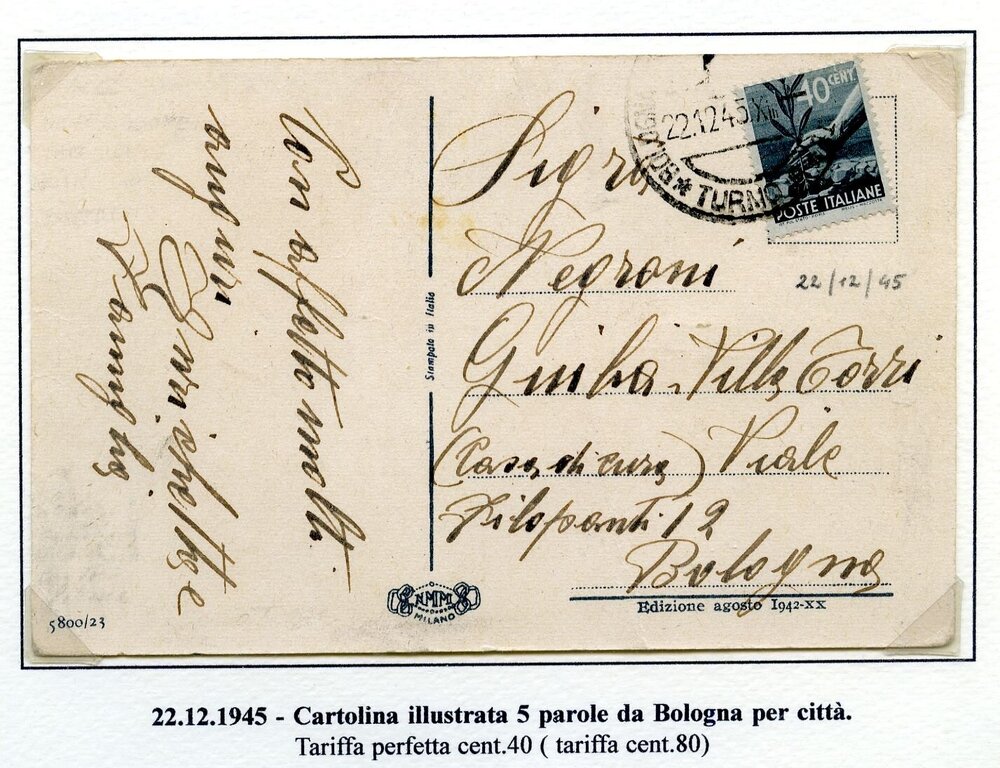 Con affetto molti
auguri
Enrichetta e
Famiglia
Stampato in Italia
NMM
MILANO
5800/23
22.12.45.XIII
BOLOGNA
POS * TURNO
40 CENT.
POSTE ITALIANE
Sigra
Negroni
22/12/45
Giulia - Villa Torri
(Casa di cura) Viale
Filopanti 12
Bologna
Edizione agosto 1942-XX
22.12.1945 - Cartolina illustrata 5 parole da Bologna per città.
Tariffa perfetta cent.40 ( tariffa cent.80)